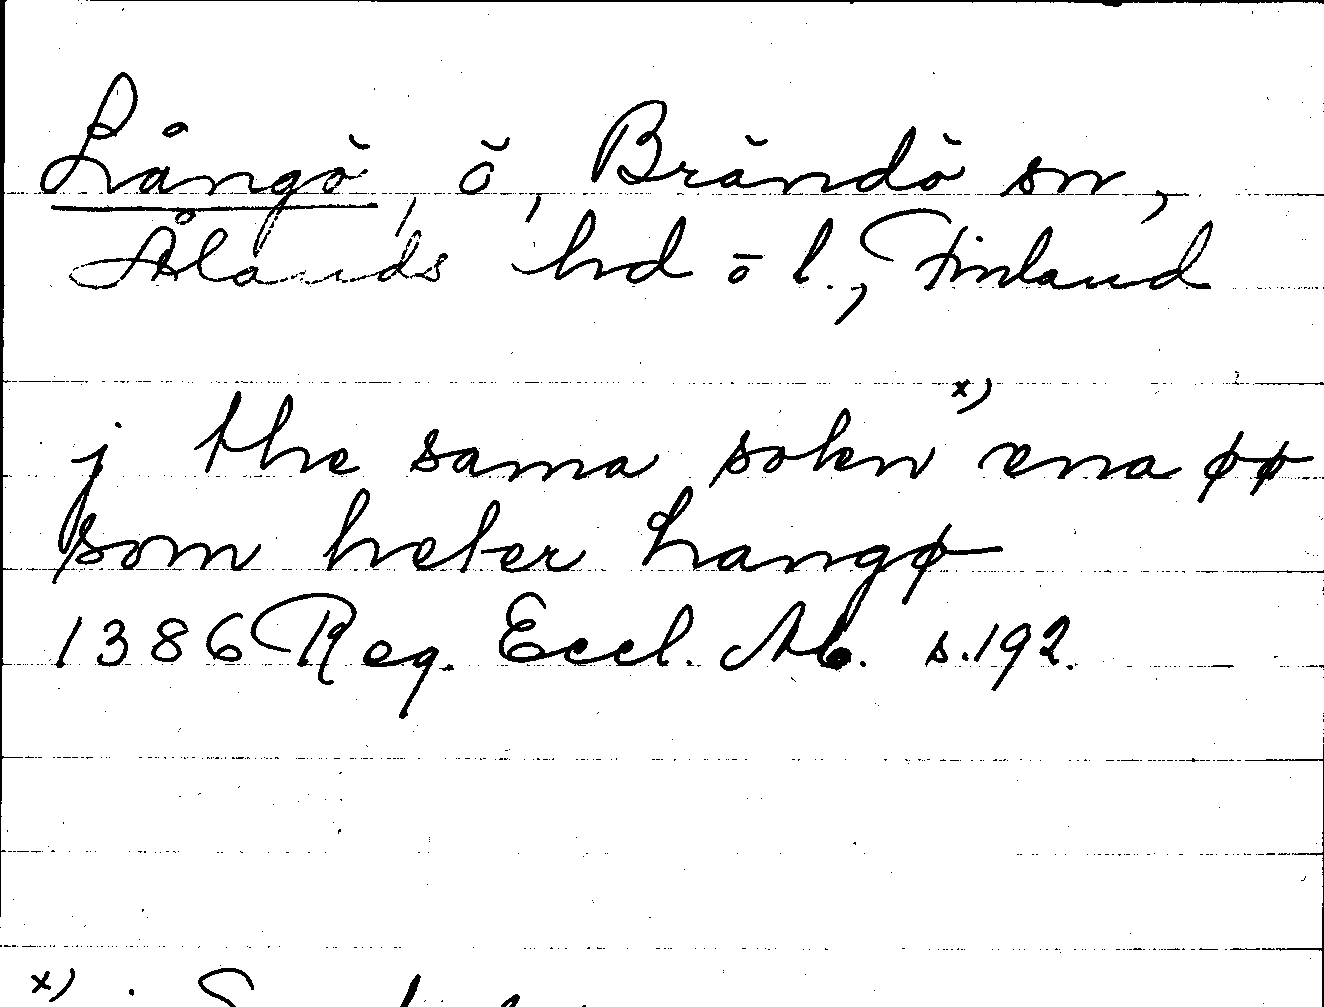 Långö, ö, Brändö sn,
Ålands hd o l., Finland
x)
j the sama sokn ena øø
som heter Langø
1386 Reg. Eccl. Ab. s.192.
x)